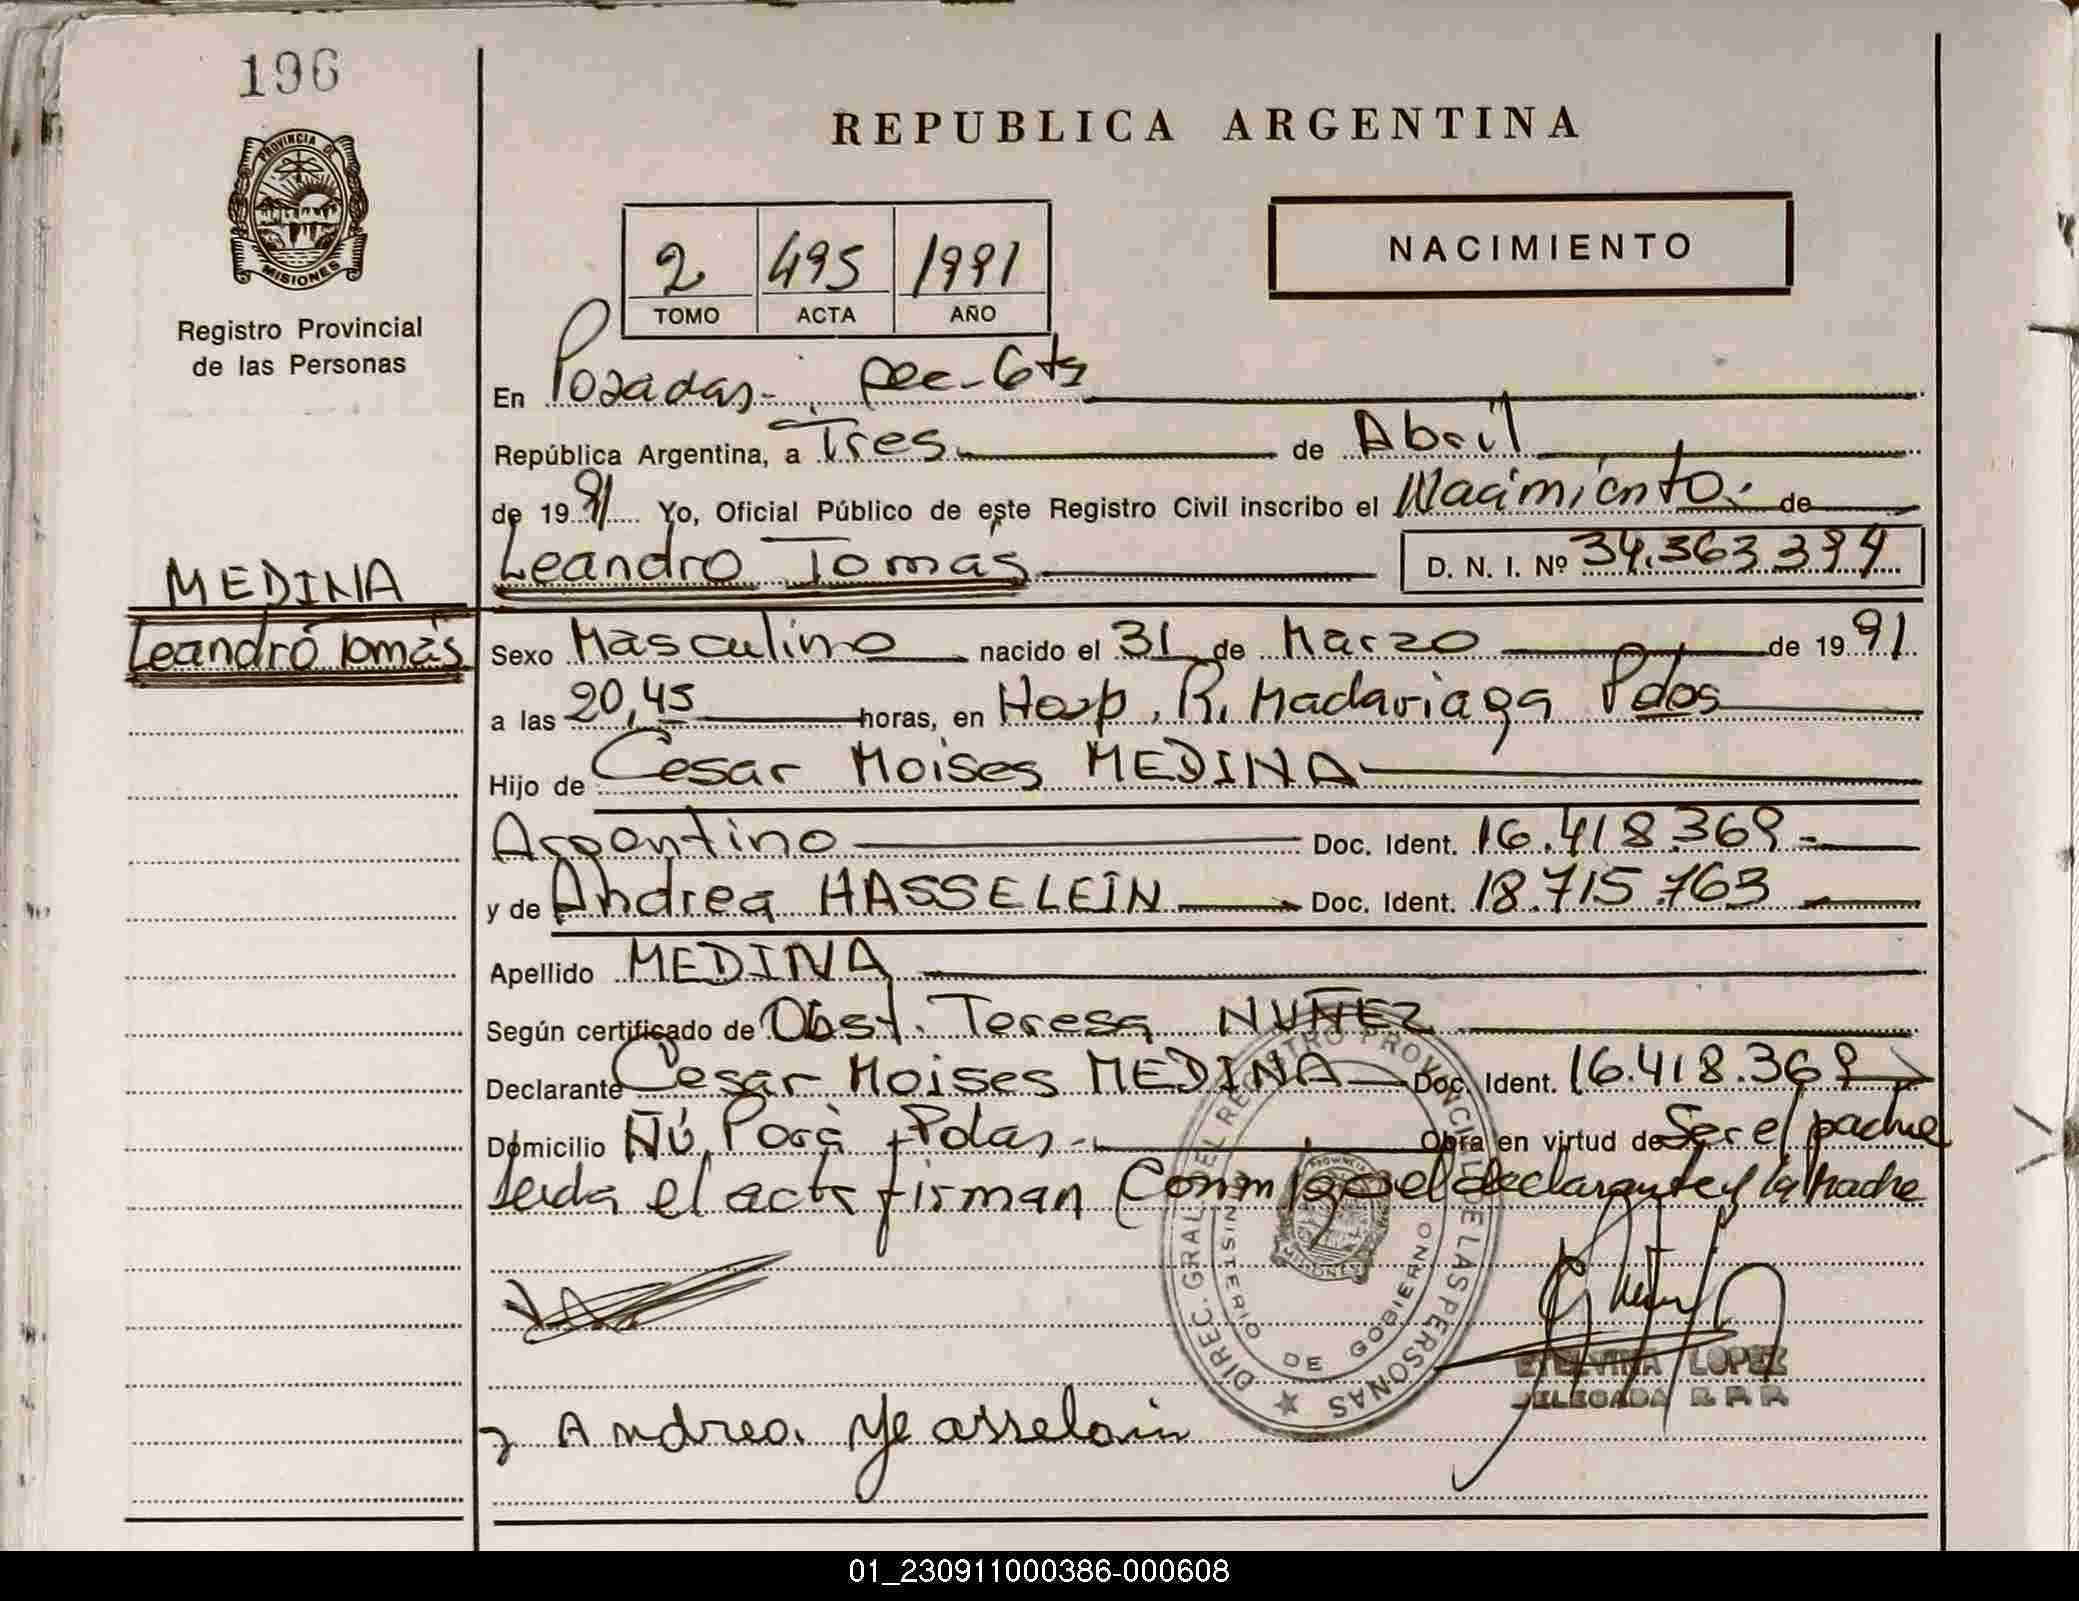 196
PROVINCIA DE
MISIONES
Registro Provincial
de las Personas
REPUBLICA ARGENTINA
2 495 1991
TOMO ACTA AÑO
NACIMIENTO
En Posadas - Sec - 6ta
República Argentina, a Tres de Abril
de 1991 Yo, Oficial Público de este Registro Civil inscribo el Nacimiento. de
Leandro Tomás D. N. I. Nº 34.363.394
MEDINA
Leandro Tomás
Sexo Masculino nacido el 31 de Marzo de 1991
a las 20,45 horas, en Hosp. R. Madariaga Pdas
Hijo de Cesar Moises MEDINA
Argentino Doc. Ident. 16.418.369 -
y de Andrea HASSELEIN Doc. Ident. 18.715.763
Apellido MEDINA
Según certificado de Obst. Teresa NUÑEZ
Declarante Cesar Moises MEDINA Doc. Ident. 16.418.369
Domicilio Ñú Porá Pdas - Obra en virtud de Ser el padre
leida el acta firman Conmigo el declarante y la Madre
DIREC. GRAL. DEL REGISTRO PROVINCIAL DE LAS PERSONAS
MINISTERIO DE GOBIERNO
PROVINCIA
MISIONES
ETELVINA LOPEZ
DELEGADA R P P
Andrea Hasselein
01_230911000386-000608